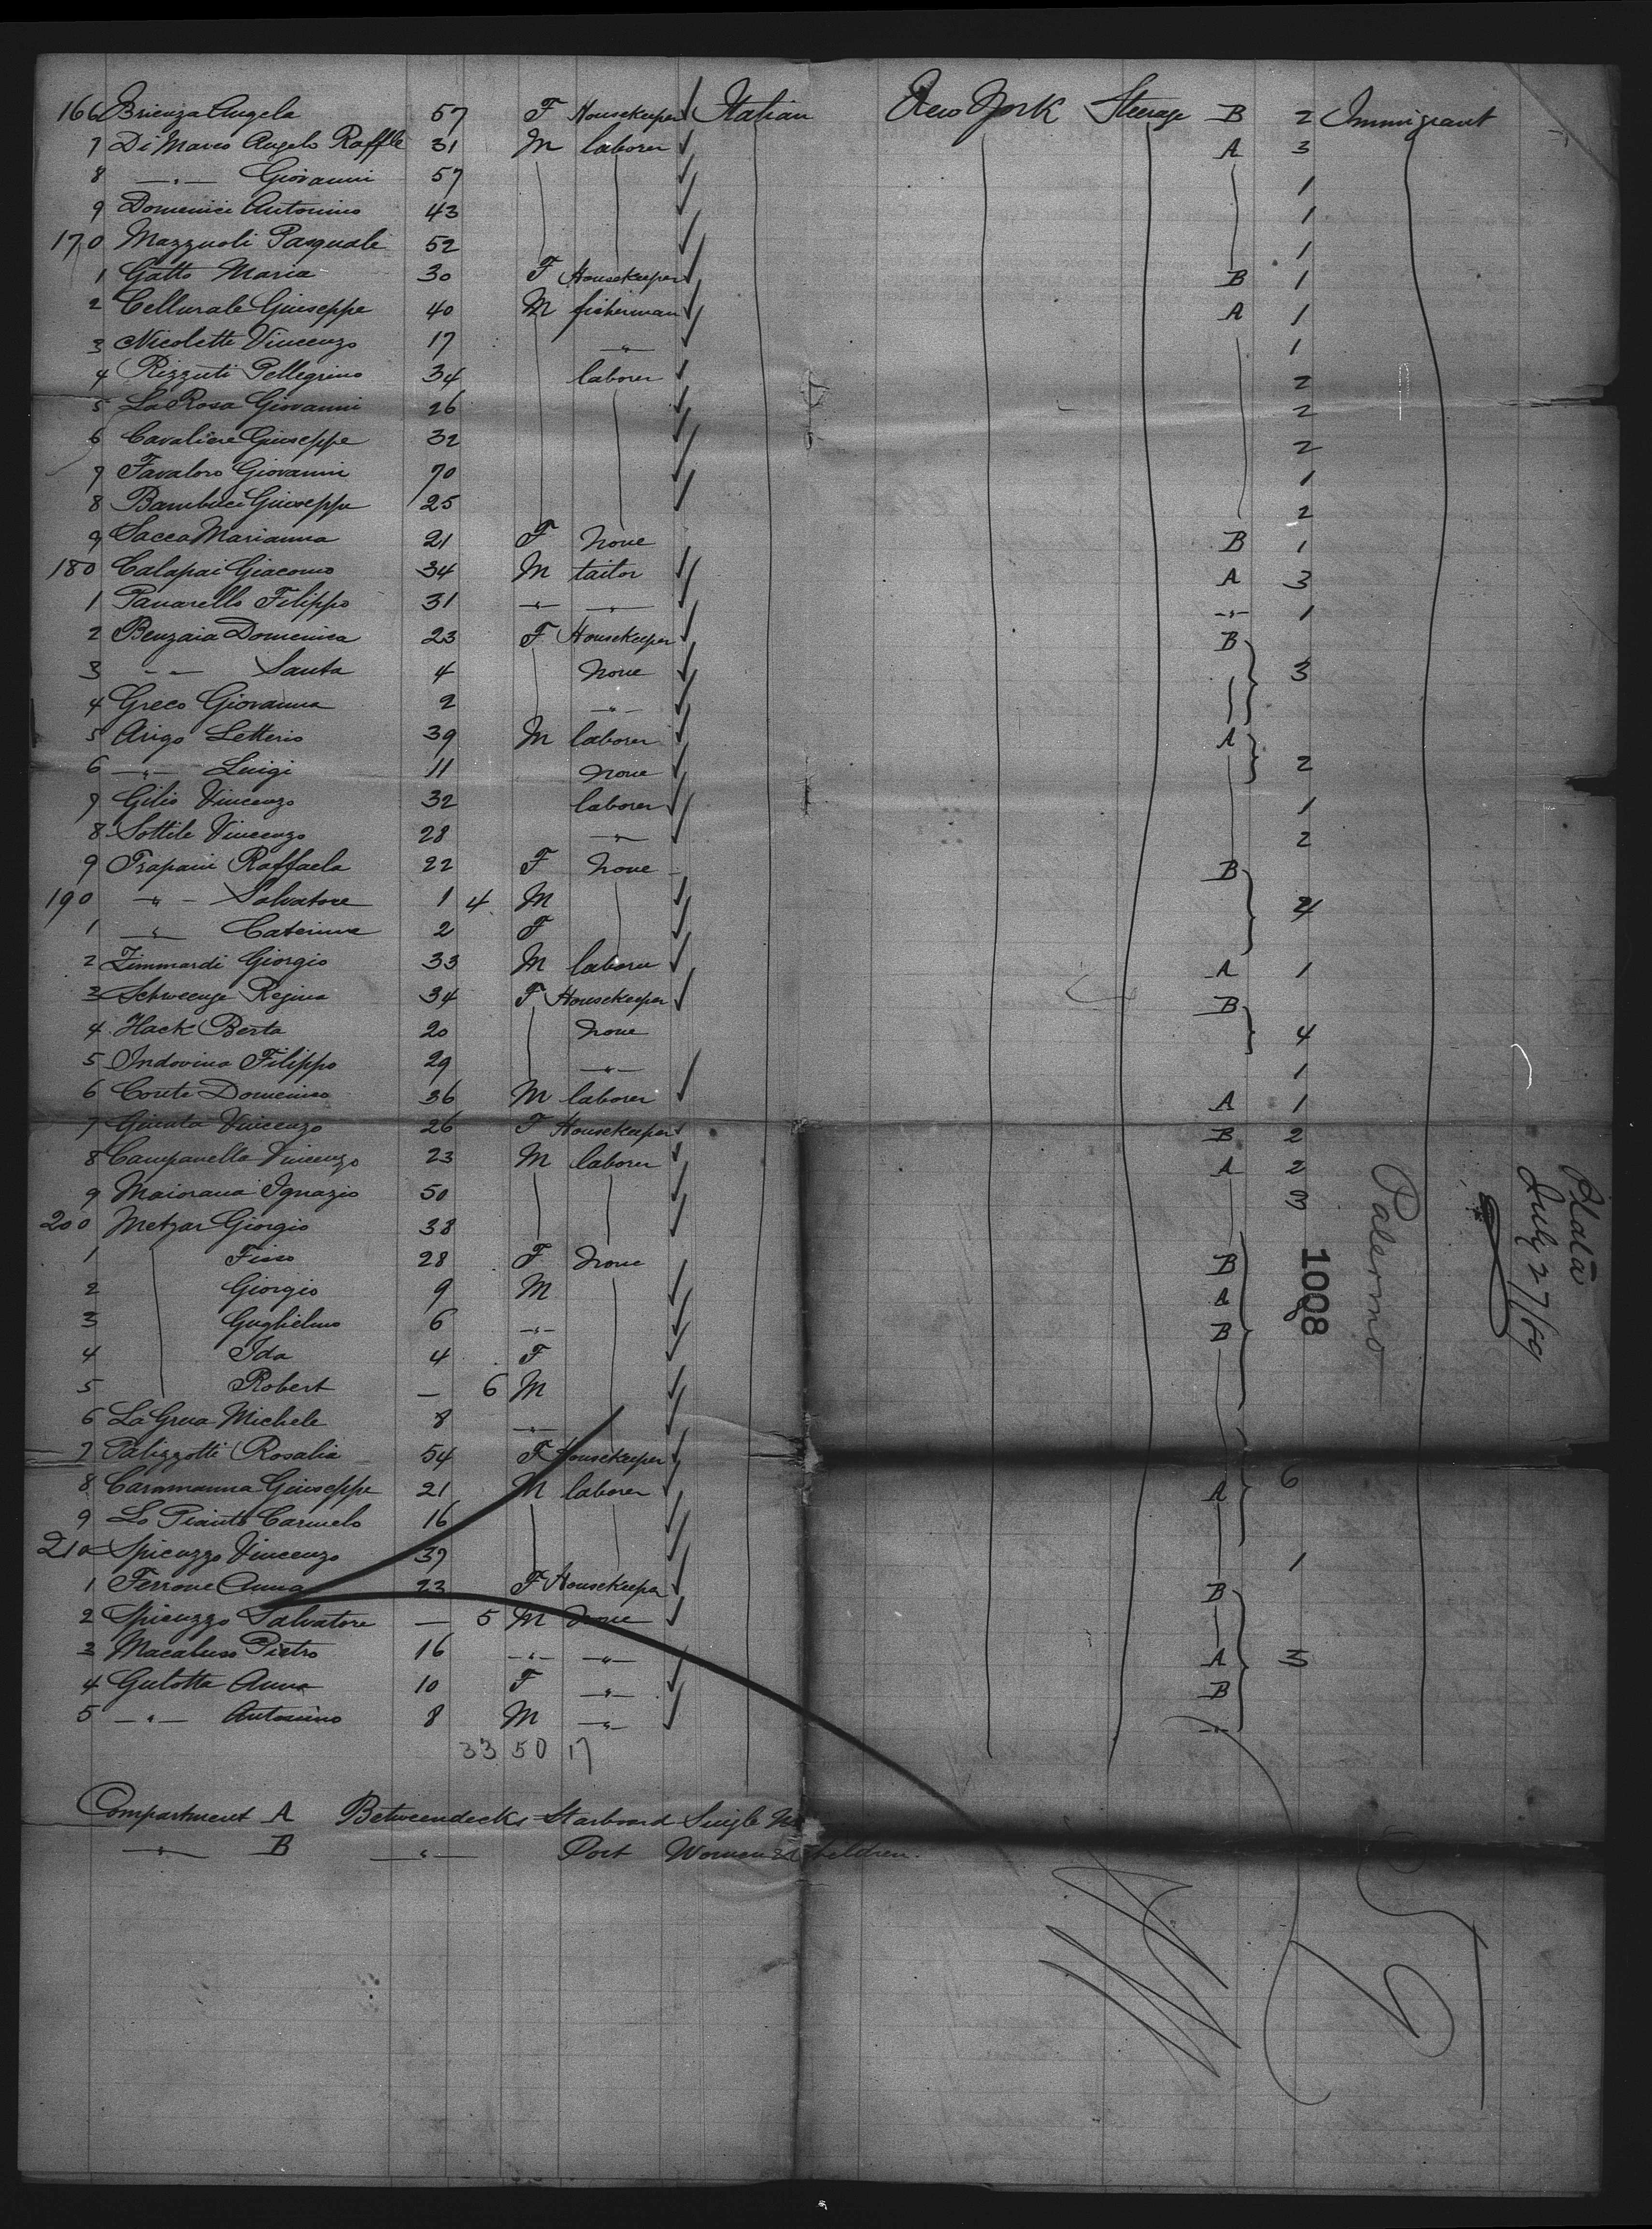 166 Brienza Angela 57 F Housekeeper Italian New York Steerage B 2 Immigrant
7 Di Marco Angelo Raffle 31 M laborer A 3
8 —"— Giovanni 57 1
9 Domenici Antonino 43 1
170 Mazzuoli Pasquale 52 1
1 Gatto Maria 30 F Housekeeper B 1
2 Cellurale Giuseppe 40 M fisherman A 1
3 Nicoletti Vincenzo 17 —"— 1
4 Rizzuti Pellegrino 34 laborer 2
5 La Rosa Giovanni 26 2
6 Cavaliere Giuseppe 32 2
7 Favaloro Giovanni 70 1
8 Bambuci Giuseppe 25 2
9 Sacca Marianna 21 F none B 1
180 Calapai Giacomo 34 M tailor A 3
1 Panarello Filippo 31 —"— —"— —"— 1
2 Benzaia Domenica 23 F Housekeeper B
3 —"— Santa 4 none 3
4 Greco Giovanna 2 —"—
5 Arigo Letterio 39 M laborer A
6 —"— Luigi 11 none 2
7 Gilio Vincenzo 32 laborer 1
8 Sottile Vincenzo 28 —"— 2
9 Trapani Raffaela 22 F none B
190 —"— Salvatore 1 4 M 4
1 —"— Caterina 2 F
2 Zimmardi Giorgio 33 M laborer A 1
3 Schwenge Regina 34 F Housekeeper B
4 Hack Berta 20 none 4
5 Indovina Filippo 29 —"— 1
6 Conte Domenico 36 M laborer A 1
7 Giunta Vincenzo 26 F Housekeeper B 2
8 Campanella Vincenzo 23 M laborer A 2
9 Maiorana Ignazio 50 3
200 Metzar Giorgio 38
1 28 F none B
2 Giorgio 9 M A
3 Guglielmo 6 —"— B
4 Ida 4 F
5 Robert — 6 M
6 La Grua Michele 8 —"—
7 Palizzotti Rosalia 54 F Housekeeper
8 Caramanna Giuseppe 21 M laborer A 6
9 Lo Pianto Carmelo 16
210 Spicuzzo Vincenzo 37 1
1 Ferrone Anna 23 F Housekeeper B
2 Spicuzzo Salvatore — 5 M none
3 Macaluso Pietro 16 —"— —"— A 3
4 Gulotta Anna 10 F —"— B
5 —"— Antonino 8 M —"— —"—
33 50 17
Compartment A Betweendecks Starboard Single
—"— B —"— Port Women & Children.
1008
Palermo
July 27/89